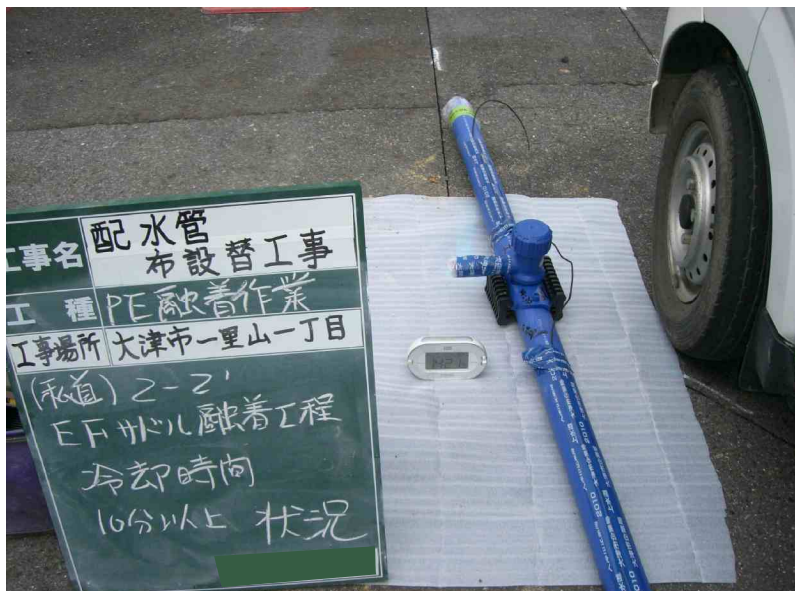 工事名 配水管
布設替工事
工種 PE融着作業
工事場所 大津市一里山一丁目
(私道) 2-2'
EFサドル融着工程
冷却時間
10分以上 状況